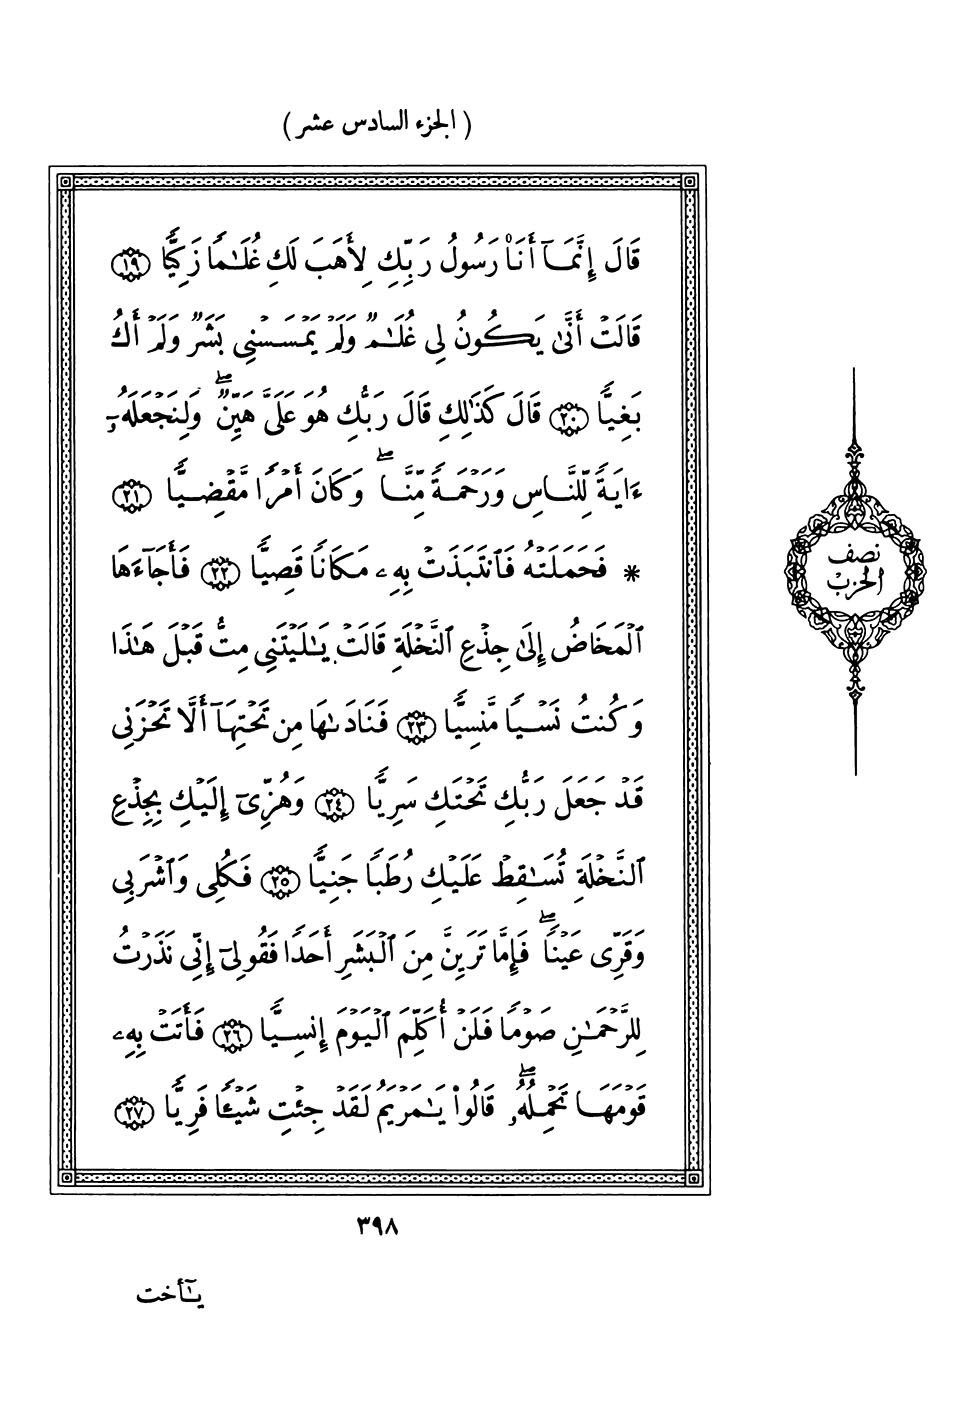 ( الجزء السادس عشر )
قَالَ إِنَّمَآ أَنَا۠ رَسُولُ رَبِّكِ لِأَهَبَ لَكِ غُلَـٰمًا زَكِيًّا ١٩
قَالَتْ أَنَّىٰ يَكُونُ لِى غُلَـٰمٌ وَلَمْ يَمْسَسْنِى بَشَرٌ وَلَمْ أَكُ
بَغِيًّا ٢٠ قَالَ كَذَٰلِكِ قَالَ رَبُّكِ هُوَ عَلَىَّ هَيِّنٌ ۖ وَلِنَجْعَلَهُۥٓ
ءَايَةً لِّلنَّاسِ وَرَحْمَةً مِّنَّا ۖ وَكَانَ أَمْرًا مَّقْضِيًّا ٢١
* فَحَمَلَتْهُ فَٱنتَبَذَتْ بِهِۦ مَكَانًا قَصِيًّا ٢٢ فَأَجَآءَهَا
ٱلْمَخَاضُ إِلَىٰ جِذْعِ ٱلنَّخْلَةِ قَالَتْ يَـٰلَيْتَنِى مِتُّ قَبْلَ هَـٰذَا
وَكُنتُ نَسْيًا مَّنسِيًّا ٢٣ فَنَادَىٰهَا مِن تَحْتِهَآ أَلَّا تَحْزَنِى
قَدْ جَعَلَ رَبُّكِ تَحْتَكِ سَرِيًّا ٢٤ وَهُزِّىٓ إِلَيْكِ بِجِذْعِ
ٱلنَّخْلَةِ تُسَـٰقِطْ عَلَيْكِ رُطَبًا جَنِيًّا ٢٥ فَكُلِى وَٱشْرَبِى
وَقَرِّى عَيْنًا ۖ فَإِمَّا تَرَيِنَّ مِنَ ٱلْبَشَرِ أَحَدًا فَقُولِىٓ إِنِّى نَذَرْتُ
لِلرَّحْمَـٰنِ صَوْمًا فَلَنْ أُكَلِّمَ ٱلْيَوْمَ إِنسِيًّا ٢٦ فَأَتَتْ بِهِۦ
قَوْمَهَا تَحْمِلُهُۥ ۖ قَالُوا۟ يَـٰمَرْيَمُ لَقَدْ جِئْتِ شَيْـًٔا فَرِيًّا ٢٧
نصف
الحزب
٣٩٨
يـٰٓأخت